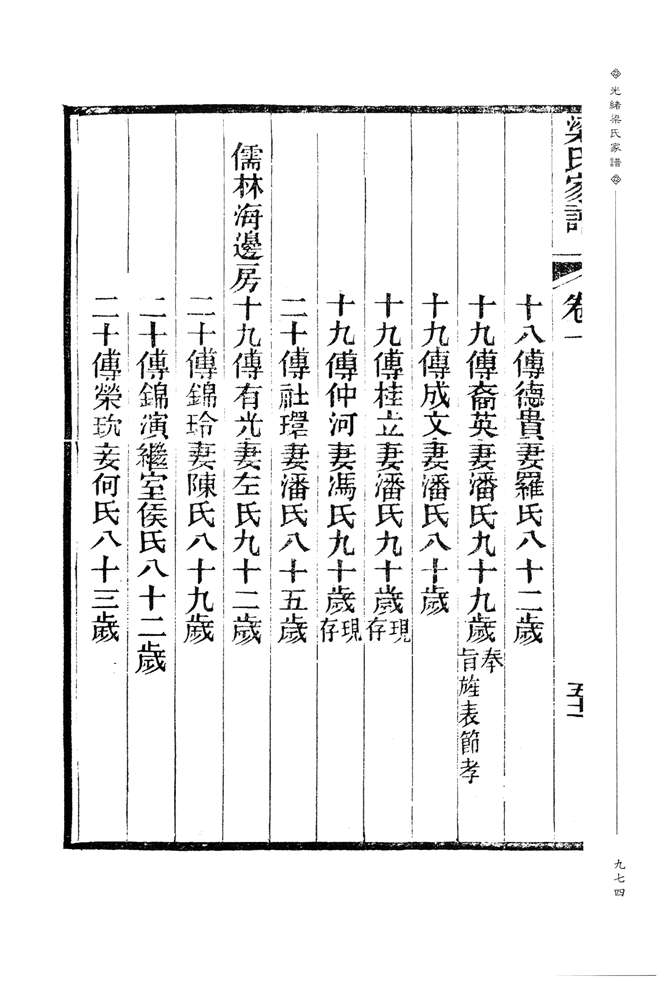 光緒梁氏家譜
梁氏家譜
卷一
十八傳德貴妻羅氏八十二歲
十九傳裔英妻潘氏九十九歲奉
旨旌表節孝
十九傳成文妻潘氏八十歲
十九傳桂立妻潘氏九十歲現存
十九傳仲河妻馮氏九十歲現存
二十傳社環妻潘氏八十五歲
儒林海邊房十九傳有光妻左氏九十二歲
二十傳錦玲妻陳氏八十九歲
二十傳錦演繼室侯氏八十二歲
二十傳榮玩妾何氏八十三歲
九七四